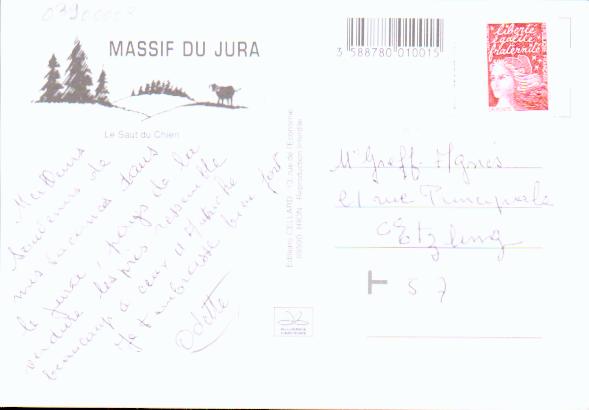 MASSIF DU JURA
Le Saut du Chien
3 588780 010015
liberté
égalité
fraternité
Editions CELLARD
Reproduction interdite
Meilleurs
souvenirs de
mes vacances dans
le Jura, pays de la
verdure, les prés ressemble
beaucoup à ceux d'Autriche
Je t'embrasse bien fort
Odette
Greff Agnès
21 rue Principale
Etzling
57